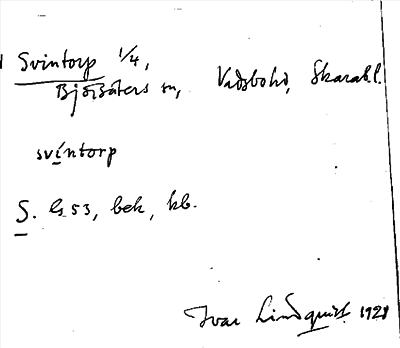 Svintorp 1/4,
Björsäters sn, Vadsbohd, Skarabl.
svíntorp
S. Gs 53, bek, kb.
Ivar Lindquist. 1928